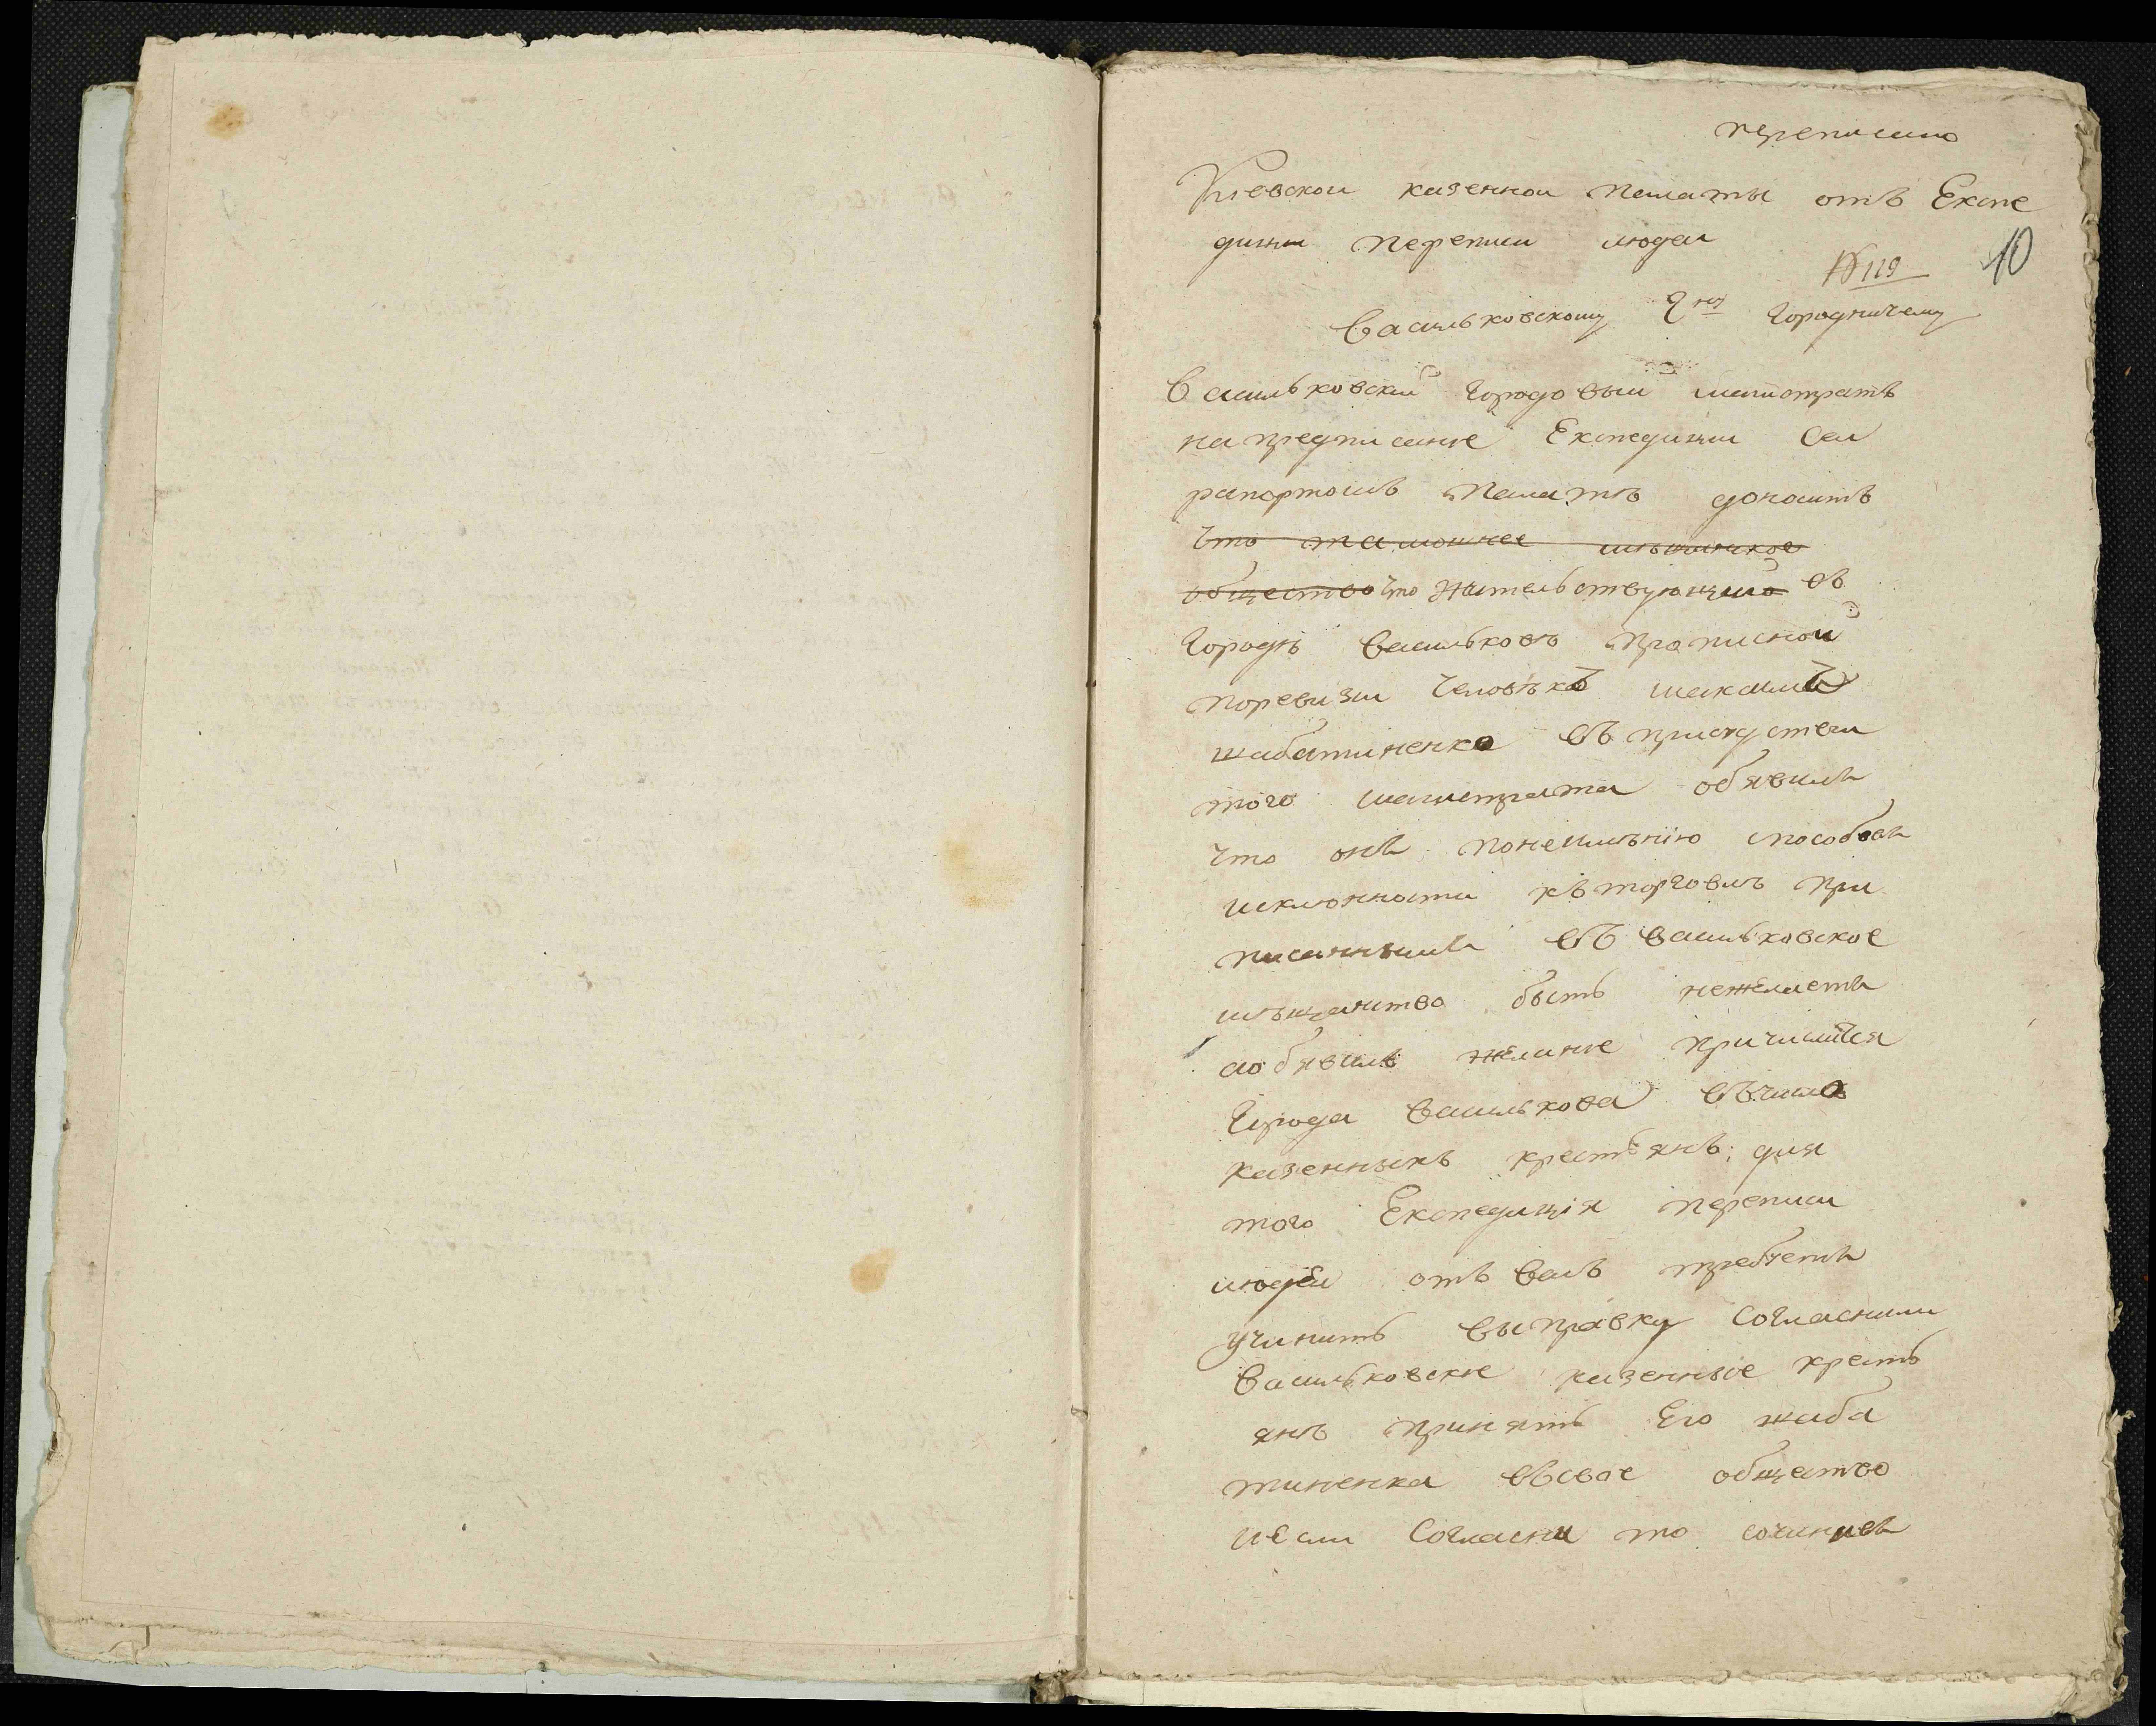 преписано
Киевской казенной палаты отъ Экспе
диции переписи людей
№ 119
10
Васильковскому Гну Городничему
Васильковский городовый магистратъ
на предписание Експедиции сей
рапортомъ палатѣ доноситъ
что тамошнее мѣщанское
общество что жительствующий въ
городѣ Василковѣ прописной
поревизии человѣкъ Максимъ
Шабатиненко въ присудствии
того магистрата обявилъ
что онъ понеимѣнию способовъ
исклонности кѣ торговлѣ при
писаннымъ въ Васильковское
мѣщанство быть нежелаетъ
аобявилъ желание причислится
города Василькова въчисло
казенныхъ крестьянъ; для
того Експедиция переписи
людей отъ васъ требуетъ
учинить выправку согласнили
Васильковские казенные кресть
янѣ принять его Шаба
тиненка въсвое общество
иесли согласни то сочинивъ